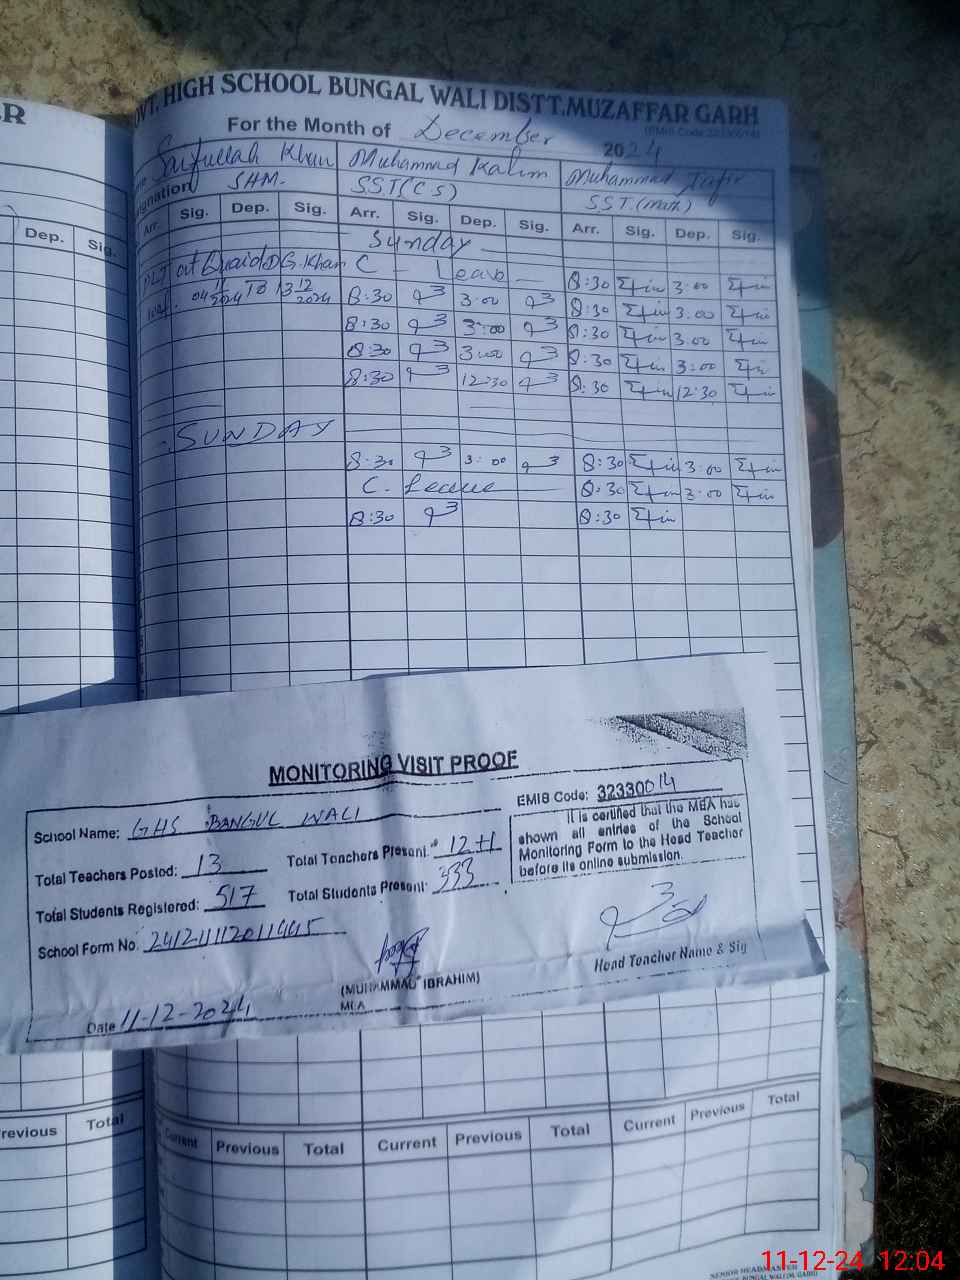 ER
GOVT. HIGH SCHOOL BUNGAL WALI DISTT.MUZAFFAR GARH
For the Month of December 2024
Saifullah Khan Muhammad Kalim Muhammad
SHM. SST(CS) S.S.T.(Math)
Dep. Sig. Arr. Sig. Dep. Sig. Arr. Sig. Dep. Sig. Arr. Sig. Dep. Sig.
Sunday
at Quaid D.G.Khan C - Leave - 8:30 3:00
04 11 2024 To 13 12 2024 8:30 3:00 8:30 3.00
8:30 3:00 8:30 3.00
8:30 3:00 8:30 3:00
8:30 12:30 8:30 12:30
SUNDAY
8:30 3:00 8:30 3:00
C. Leave 8:30 3:00
8:30 8:30
MONITORING VISIT PROOF
School Name: GHS BANGUL WALI
EMIS Code: 32330014
It is certified that the MEA has
shown all entries of the School
Monitoring Form to the Head Teacher
before its online submission.
Total Teachers Posted: 13 Total Teachers Present: 12+1
Total Students Registered: 517 Total Students Present: 333
School Form No. 2412111120111445
Head Teacher Name & Sig
(MUHAMMAD IBRAHIM)
MEA
Date 11-12-2024
Previous Total Current Previous Total Current Previous Total Current Previous Total
SENIOR HEADMASTER
BUNGAL WALI(M. GARH)
11-12-24 12:04